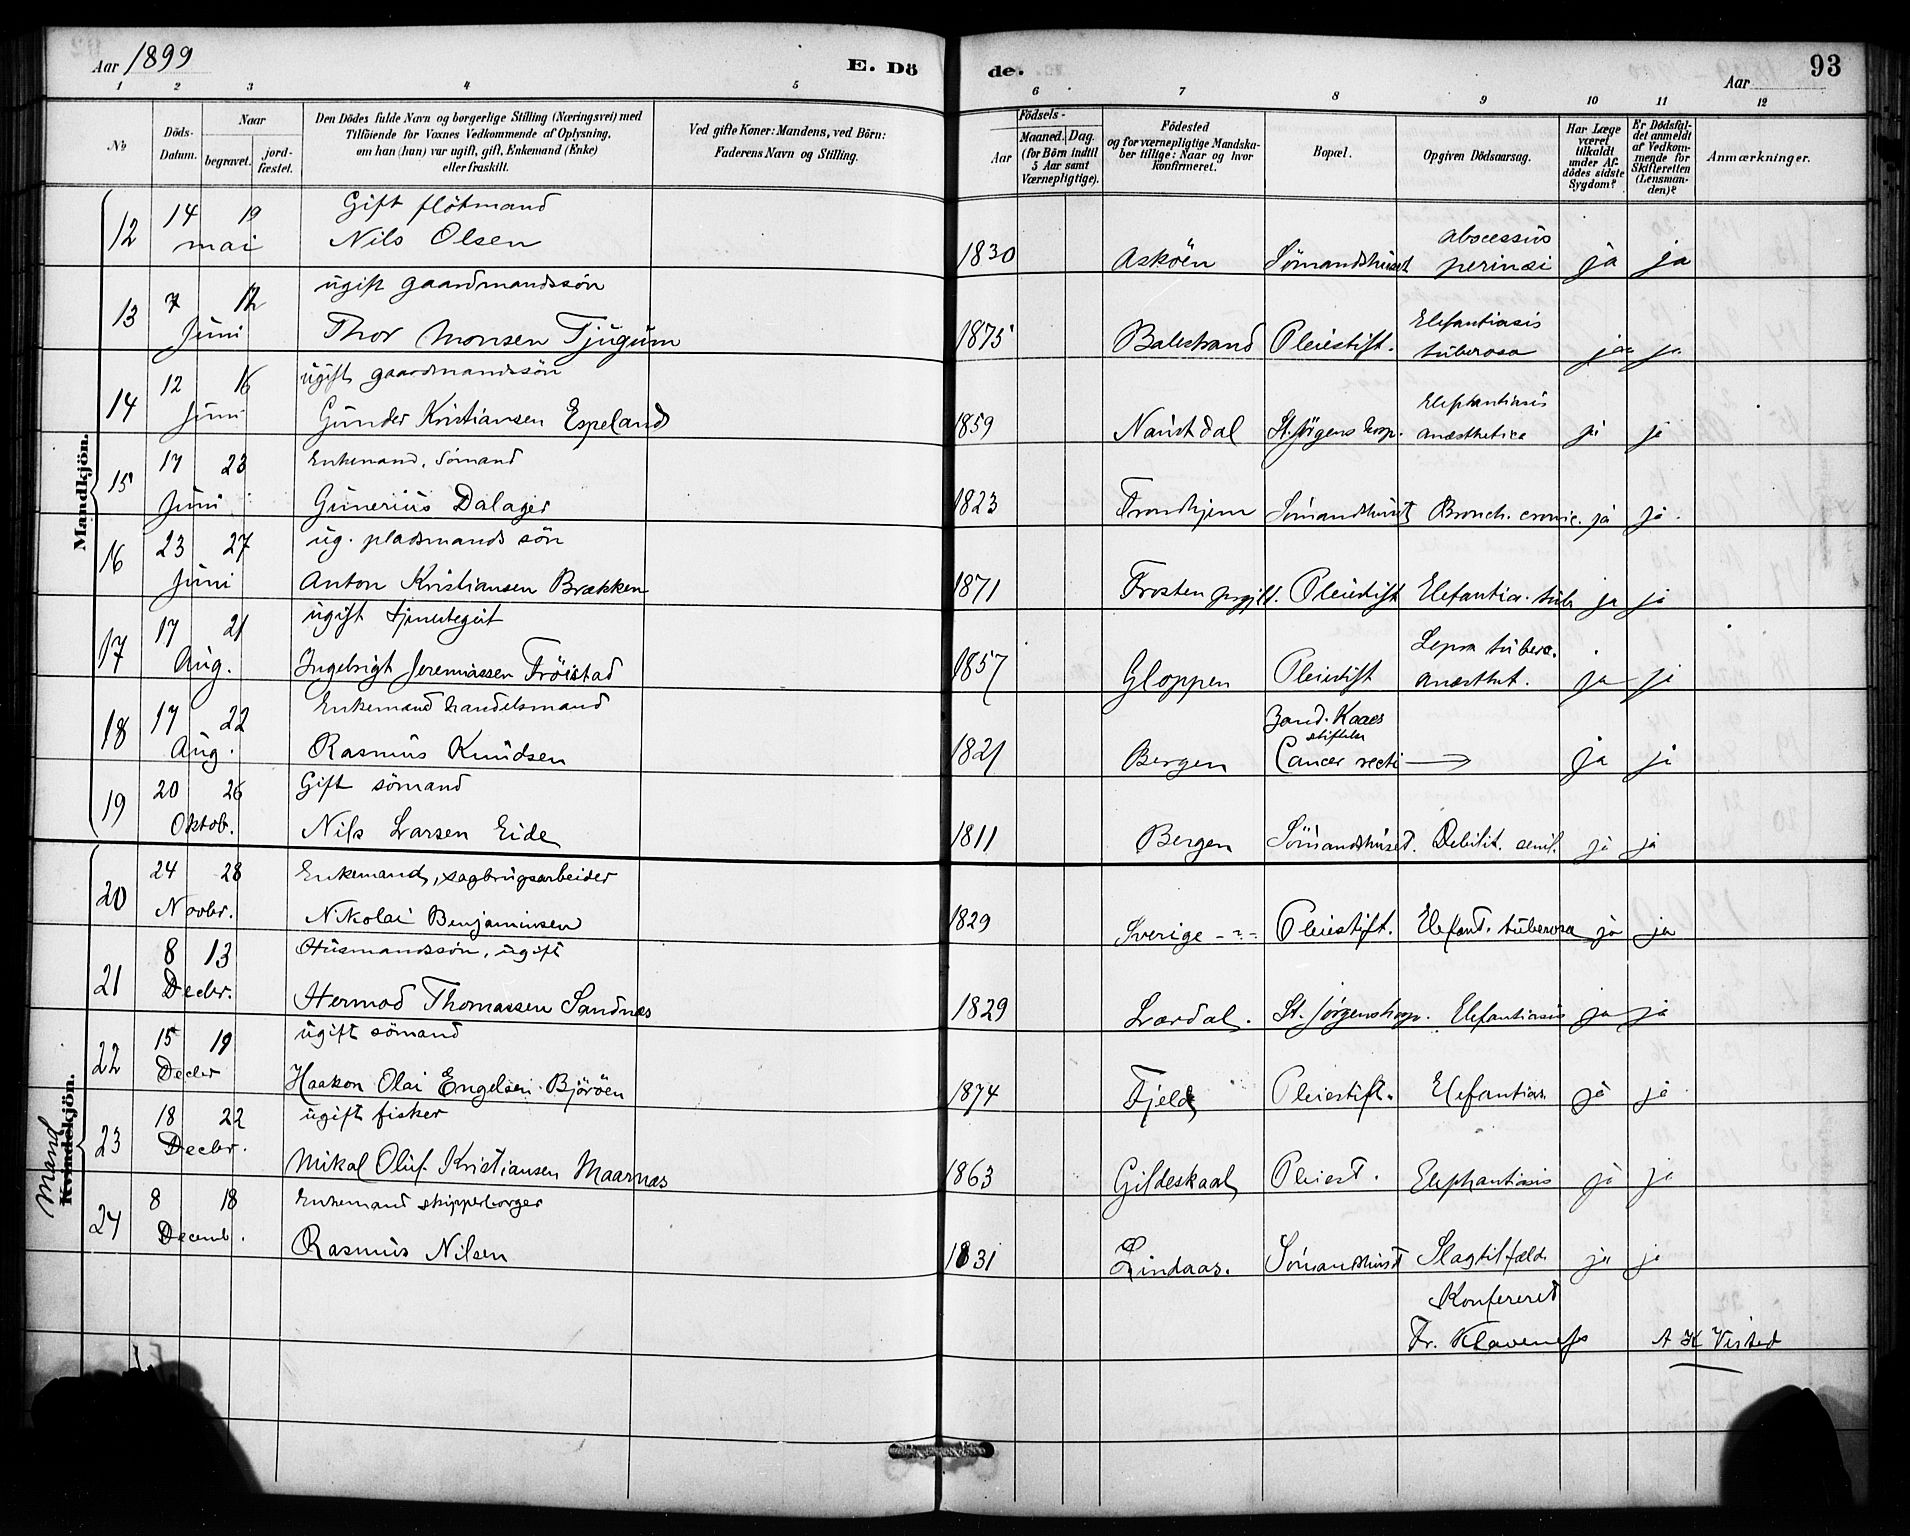 Aar 1899 E. Dö de. Aar 93
1 2 3 4 5 6 7 8 9 10 11 12
No
Döds-Datum.
Naar
begravet. jord-fæstet.
Den Dödes fulde Navn og borgerlige Stilling (Næringsvei) med
Tilföiende for Voxnes Vedkommende af Oplysning,
om han (hun) var ugift, gift, Enkemand (Enke)
eller fraskilt.
Ved gifte Koner: Mandens, ved Börn:
Faderens Navn og Stilling.
Födsels-
Aar
Maaned. Dag.
(for Börn indtil
5 Aar samt
Værnepligtige).
Födested
og for værnepligtige Mandska-
ber tillige: Naar og hvor
konfirmeret.
Bopæl.
Opgiven Dödsaarsag.
Har Læge
været
tilkaldt
under Af-
dödes sidste
Sygdom?
Er Dödsfal-
det anmeldt
af Vedkom-
mende for
Skifteretten
(Lensman-
den)?
Anmærkninger.
Mandkjön.
12 14 19 Gift flötmand
mai Nils Olsen 1830 Asköen Sömandshuset abscessus perinæi ja ja
13 7 12 ugift gaardmandssön
Juni Thor Monsen Tjugum 1875 Balestrand Pleiestift. Elefantiasis tuberosa ja ja
14 12 16 ugift gaardmandssön
Juni Gunder Kristiansen Espeland 1859 Naustdal St. Jörgens hosp. Elephantiasis anæsthetica ja ja
15 17 23 Enkemand, sömand
Juni Gunerius Dalager 1823 Trondhjem Sömandshuset Bronch. cronic. ja ja.
16 23 27 ug. pladsmands sön
Juni Anton Kristiansen Brækken 1871 Frosten prgjld. Pleiestift Elefantia. tub. ja ja
17 17 21 ugift
Aug. Ingebrigt Jeremiassen Fröistad 1857 Gloppen Pleiestift Lepra tubero. anæsthet. ja ja
18 17 22 Enkemand handelsmand
Aug. Rasmus Knudsen 1821 Bergen Zand. Kaaes stiftelse Cancer recti → ja ja
19 20 26 Gift sömand
Oktob. Nils Larsen Eide 1811 Bergen Sömandshuset. Debilit. senil. ja ja
Mand
Kvindekjön.
20 24 28 Enkemand, sagbrugsarbeider
Novbr. Nikolai Benjaminsen 1829 Sverige -?- Pleiestift. Elefant. tuberosa ja ja
21 8 13 Husmandssön, ugift
Decbr. Hermod Thomassen Sandnæs 1829 Lærdal. St. Jörgenshosp. Elefantiasis ja ja
22 15 19 ugift sömand
Decbr Haakon Olai Engelsen Björöen 1874 Fjeld Pleiestift. Elefantias. ja ja
23 18 22 ugift fisker
Decbr. Mikal Oluf Kristiansen Maarnæs 1863 Gildeskaal Pleiest. Elephantiasis ja ja
24 8 18 Enkemand skipperborger
Decemb. Rasmus Nilsen 1831 Lindaas. Sömandshuset Slagtilfæld ja ja
Konfereret
Fr. Klaveness A K Visted